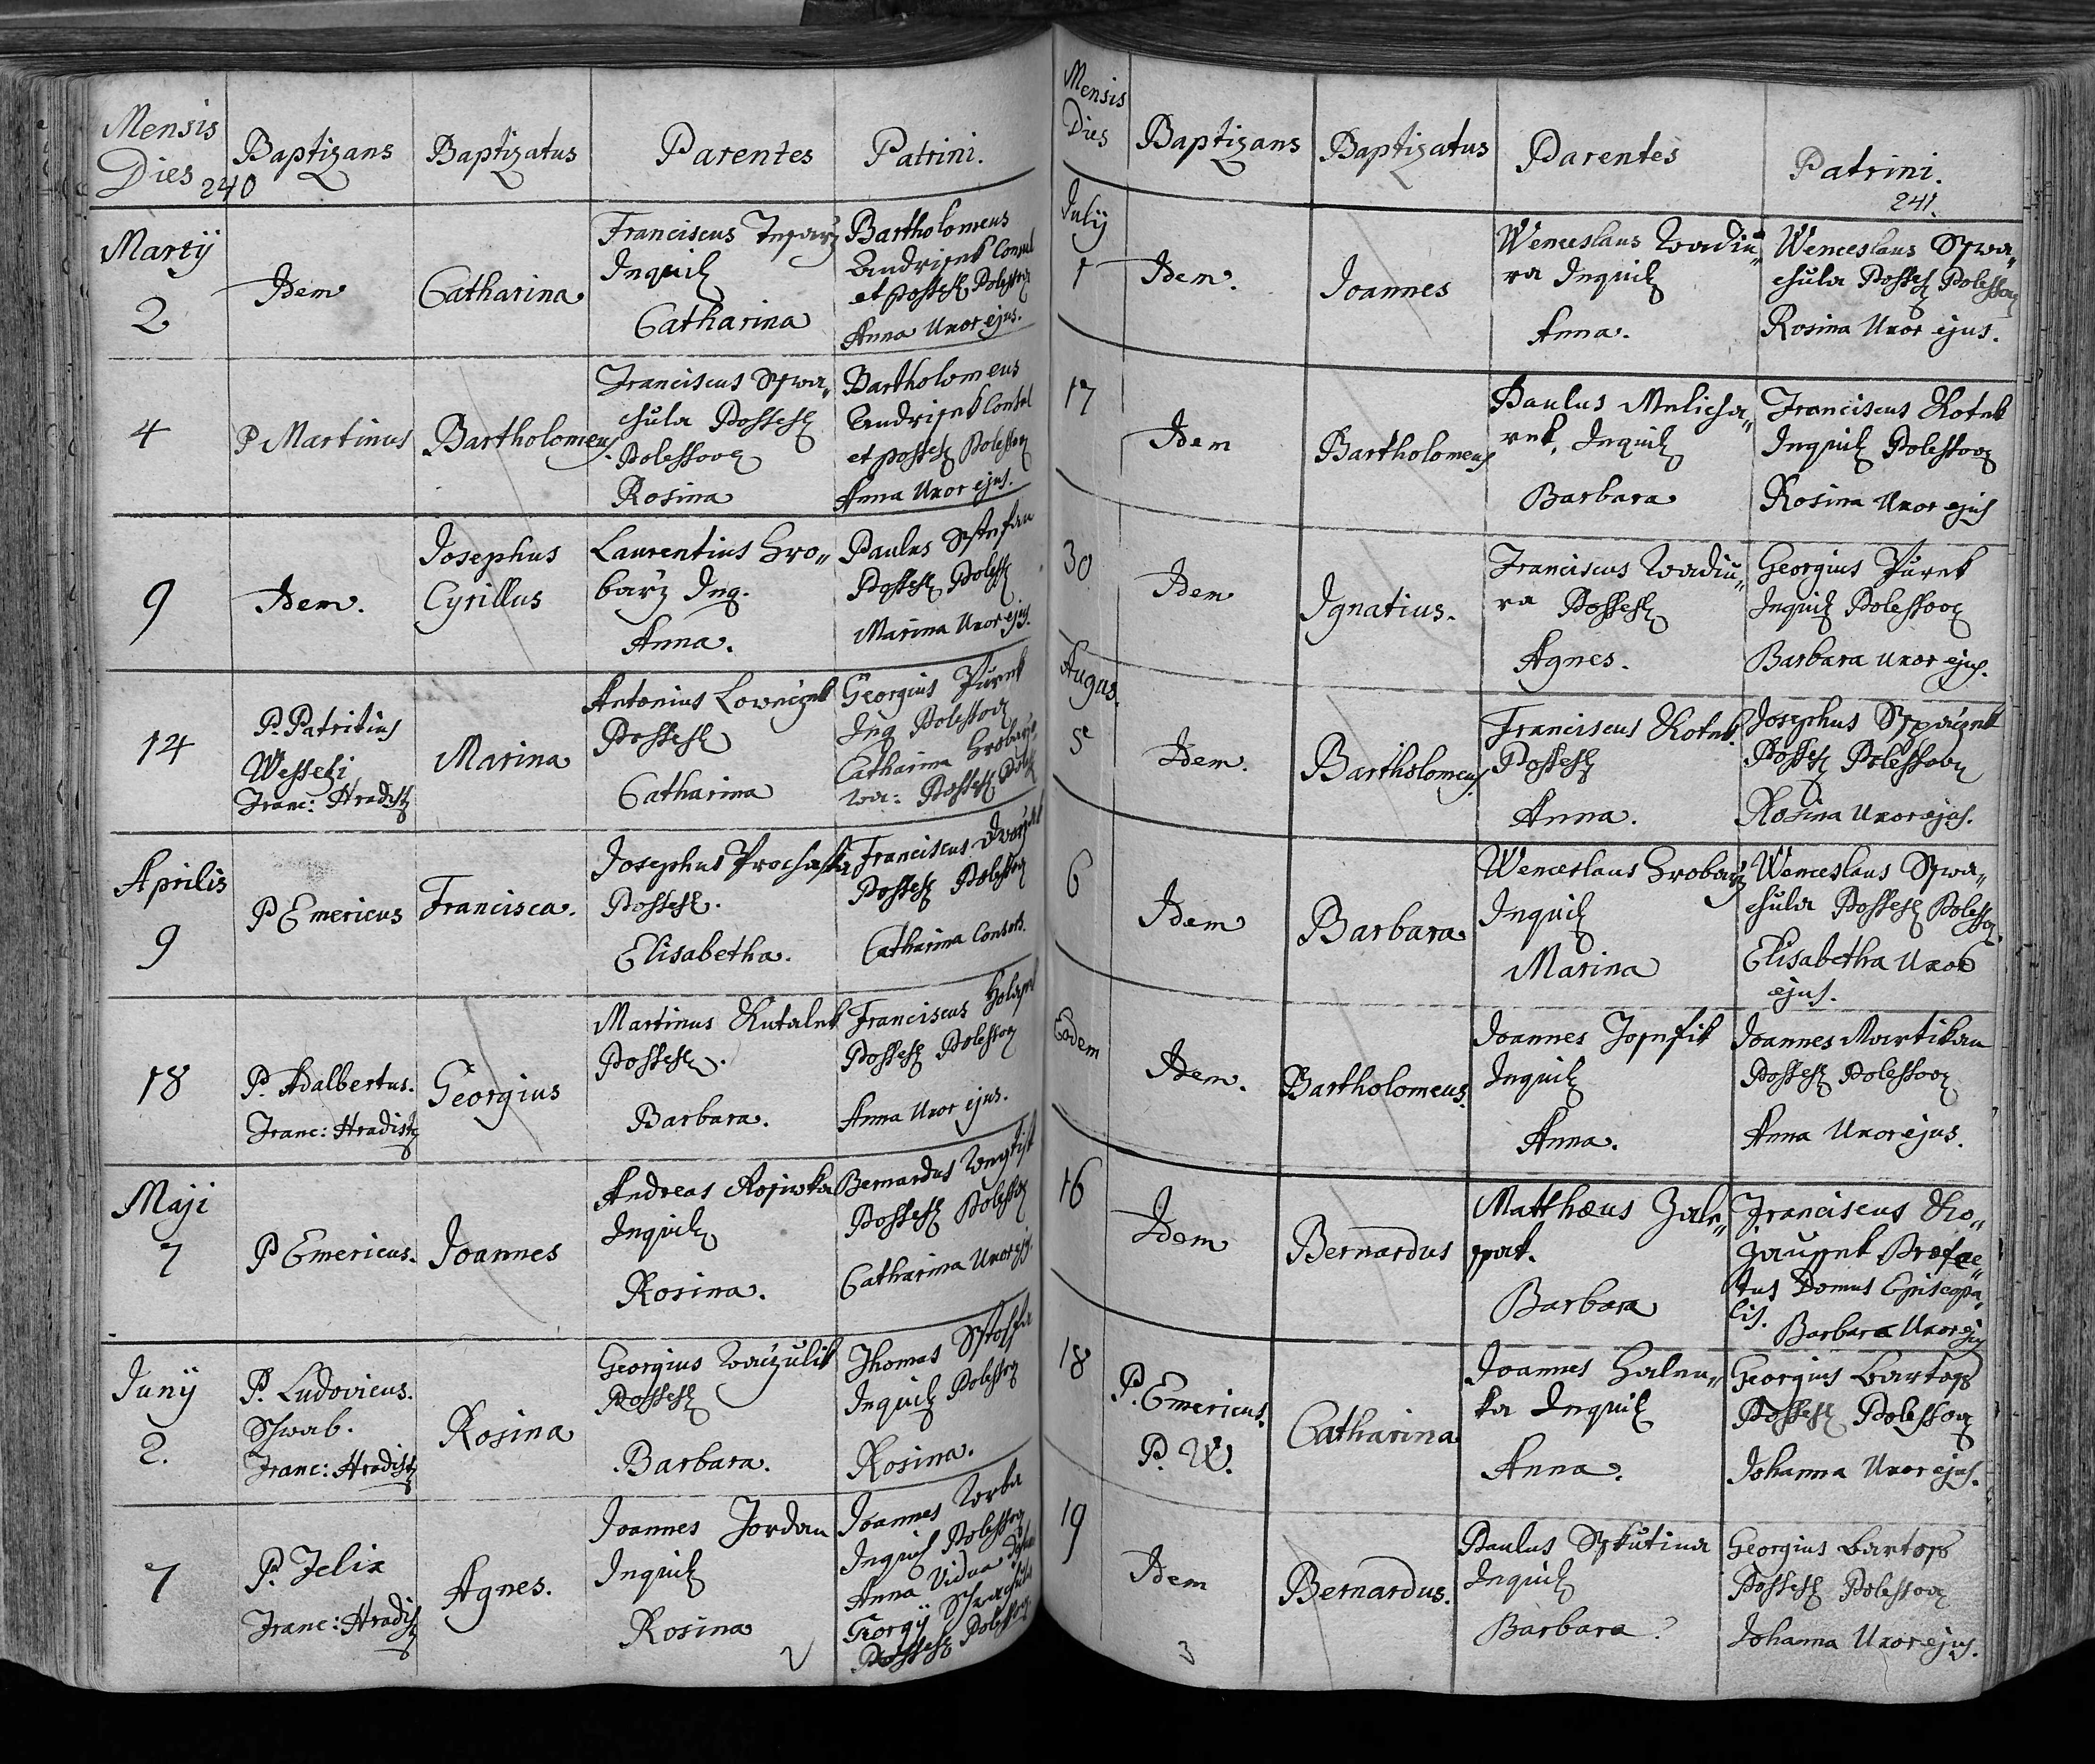 Mensis
Dies
Baptizans
Baptizatus
Parentes
Patrini.
240
Martij
2
Idem
Catharina
Franciscus
Inquil
Catharina
Bartholomeus
Consul
et possess Polessov
Anna Uxor ejus.
4
P Martinus
Bartholomeus.
Franciscus Sswa„
chula Possess
Polessov
Rosina
Bartholomeus
Consul
et possess Polessov
Anna Uxor ejus.
9
Idem.
Josephus
Cyrillus
Laurentius Hro„
barz Inq.
Anna.
Paulus Sstefan
Possess Poless
Marina Uxor ejus.
14
P. Patritius
Wesseli
Franc: Hradist
Marina
Antonius
Possess
Catharina
Georgius Zurek
Inq Polessov
Catharina Hrobarz„
wa: Possess Poless
Aprilis
9
P Emericus
Francisca.
Josephus Prochaska
Possess.
Elisabetha.
Franciscus
Possess Polessov
Catharina Consors.
18
P. Adalbertus.
Franc: Hradist
Georgius
Martinus Kutalek
Possess.
Barbara.
Franciscus
Possess Polessov
Anna Uxor ejus.
Maji
7
P Emericus.
Joannes
Andreas
Inquil
Rosina.
Bernardus
Possess Polessov
Catharina Uxor ej.
Junij
2.
P. Ludovicus.
Schwab.
Franc: Hradist
Rosina
Georgius
Possess
Barbara.
Thomas
Inquil Polessov
Rosina.
7
P. Felix
Franc: Hradist
Agnes.
Joannes Jordan
Inquil
Rosina
Joannes Worba
Inquil Polessov
Anna Vidua
Georgij
Possess Polessov
Mensis
Dies
Baptizans
Baptizatus
Parentes
Patrini.
241.
July
1
Idem.
Joannes
Wenceslaus Wadiu„
ra Inquil
Anna.
Wenceslaus Sswa„
chula Possess Polessov
Rosina Uxor ejus.
17
Idem
Bartholomeus
Paulus Melicha„
rek, Inquil
Barbara
Franciscus Kotek
Inquil Polessov
Rosina Uxor ejus
30
Idem
Ignatius.
Franciscus Wadiu„
ra Possess
Agnes.
Georgius Zurek
Inquil Polessov
Barbara Uxor ejus.
Augus.
5
Idem.
Bartholomeus.
Franciscus Kotek.
Possess
Anna.
Josephus
Possess Polessov
Rosina Uxor ejus.
6
Idem
Barbara
Wenceslaus Hrobarz
Inquil
Marina
Wenceslaus Sswa„
chula Possess Polessov
Elisabetha Uxor
ejus.
Eodem
Idem.
Bartholomeus.
Joannes
Inquil
Anna.
Joannes Martikan
Possess Polessov
Anna Uxor ejus.
16
Idem
Bernardus
Matthæus Zale„
pat.
Barbara
Franciscus Ko„
Præfae„
tus Domus Episcopa„
lis.
Barbara Uxor ej
18
P. Emericus.
P. W.
Catharina
Joannes Halen„
ka Inquil
Anna.
Georgius Bartoss
Possess Polessov
Johanna Uxor ejus.
19
Idem
Bernardus.
Paulus Sskutina
Inquil
Barbara
Georgius Bartoss
Possess Polessov
Johanna Uxor ejus.